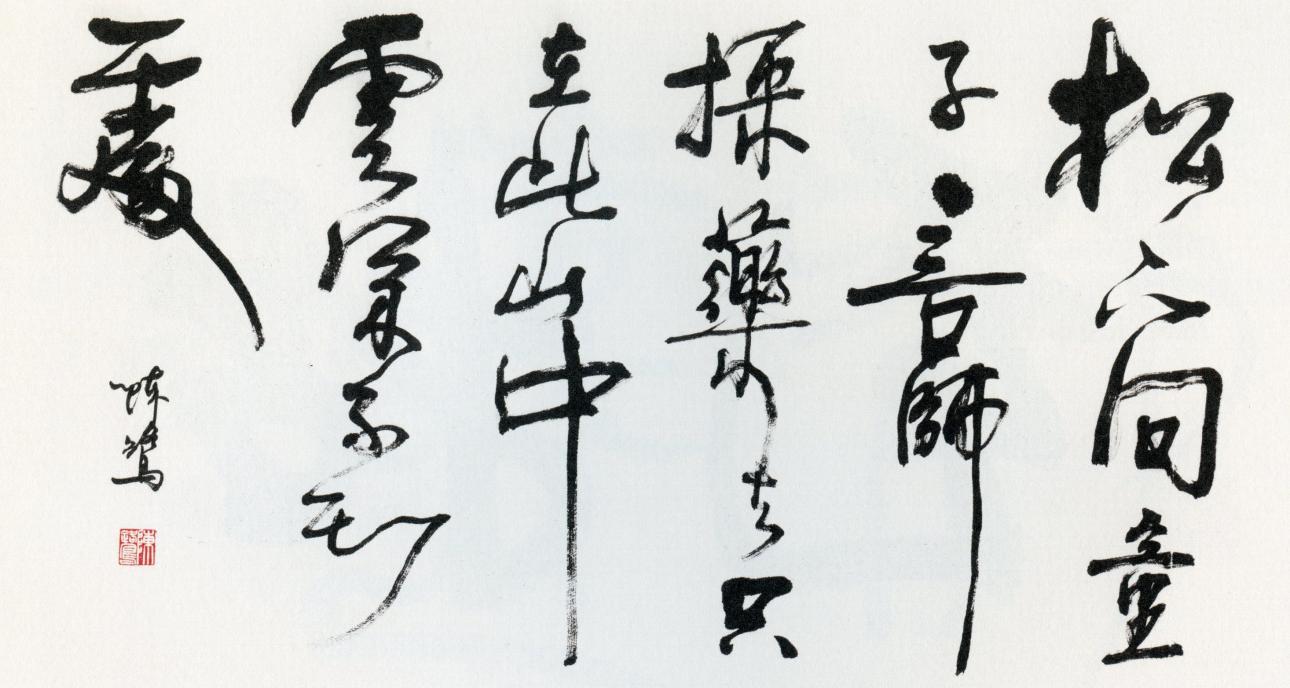 松下問童
子言師
採藥去只
在此山中
雲深不知
處
陳